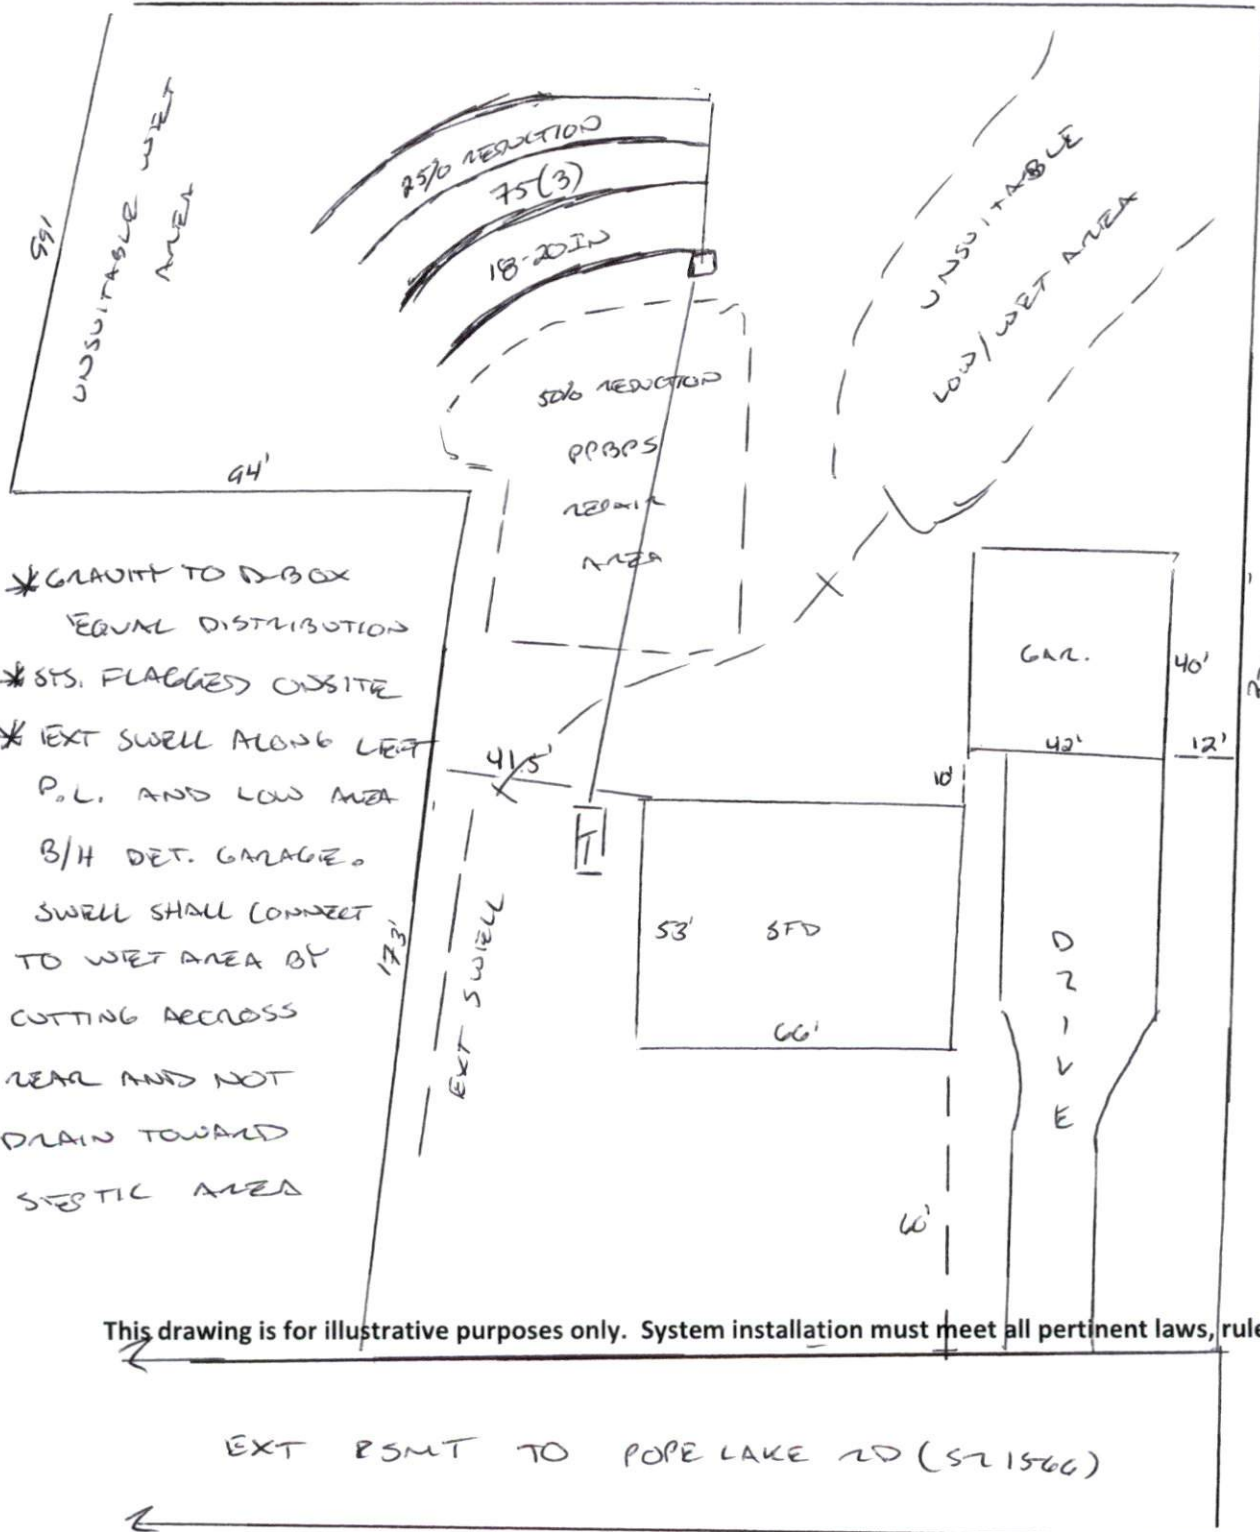 UNSUITABLE WET
AREA
99'
25% REDUCTION
75(3)
18-20IN
UNSUITABLE
LOW/WET AREA
50% REDUCTION
PPBPS
REPAIR
AREA
94'
* GRAVITY TO D-BOX
EQUAL DISTRIBUTION
* SYS. FLAGGED ONSITE
* EXT SWELL ALONG LEFT
P.L. AND LOW AREA
B/H DET. GARAGE.
SWELL SHALL CONNECT
TO WET AREA BY
CUTTING ACCROSS
REAR AND NOT
DRAIN TOWARD
SEPTIC AREA
GAR.
40'
42'
12'
10'
41.5'
T
53'
SFD
66'
173'
EXT SWELL
DRIVE
60'
This drawing is for illustrative purposes only. System installation must meet all pertinent laws,
EXT ESMT TO POPE LAKE RD (SR 1566)